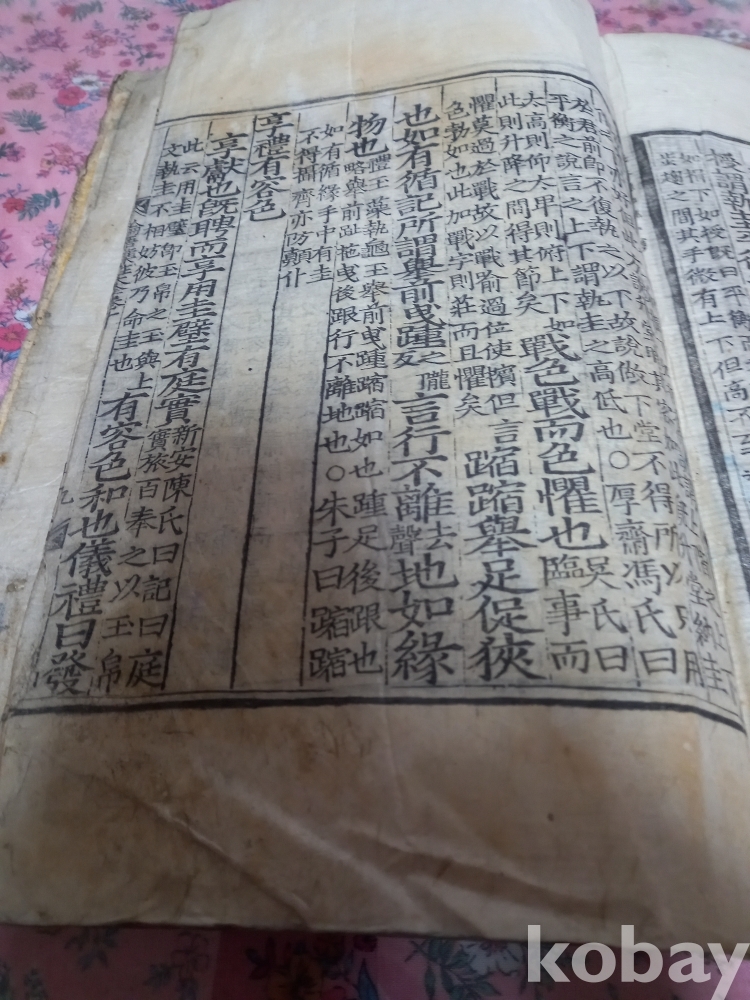 如授既曰平衡而
其手微有上下但高不
於君前即不復執之以下故說做下堂不得所以只用
平衡之說言之上下謂執圭之高低也○厚齋馮氏曰
太高則仰太卑則俯上下如
此則升降之間得其節矣
戰色戰而色懼也
吳氏曰
臨事而
懼莫過於戰故以戰喻過位使擯但言
色勃如也此加戰字則莊而且懼矣
蹜蹜舉足促狹
也如有循記所謂舉前曳踵
之隴
反
言行不離
去
聲
地如緣
物也
禮玉藻執龜玉舉前曳踵蹜蹜如也踵足後跟也
略舉前趾拖曳後跟行不離地也○朱子曰蹜蹜
如有循緣手中有圭
不得攝齊亦防顛仆
享禮有容色
享獻也既聘而享用圭璧有庭實
新安陳氏曰記曰庭
實旅百奉之以玉帛
此云用圭璧即玉帛之玉與上
文執圭不相妨彼乃命圭也
有容色和也儀禮曰發
kobay